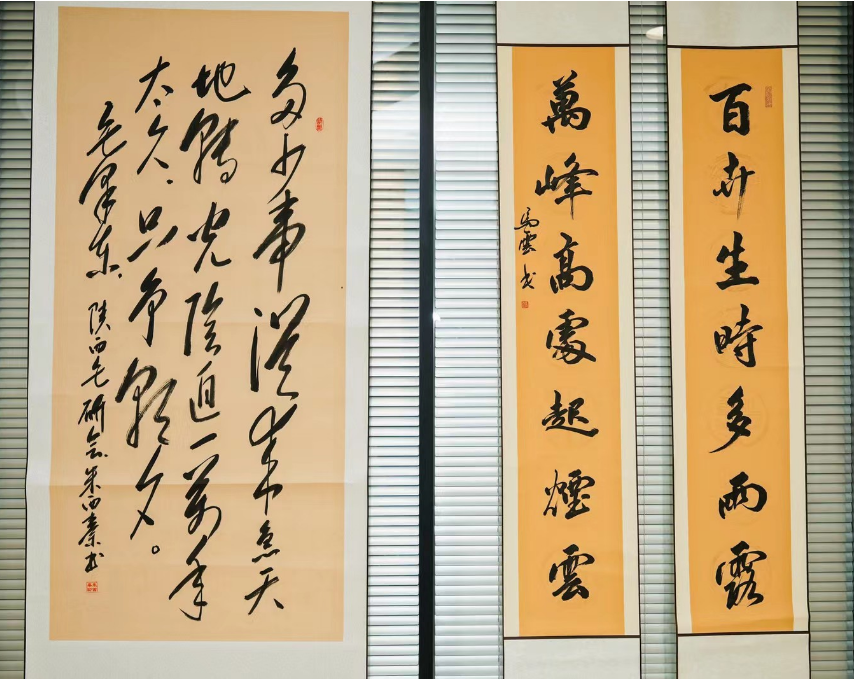 百卉生時多雨露
萬峰高處起煙雲
馬雲书
多少事從来急天
地轉光陰迫一萬年
太久,只争朝夕。
毛澤东,陕西毛研会朱西秦书